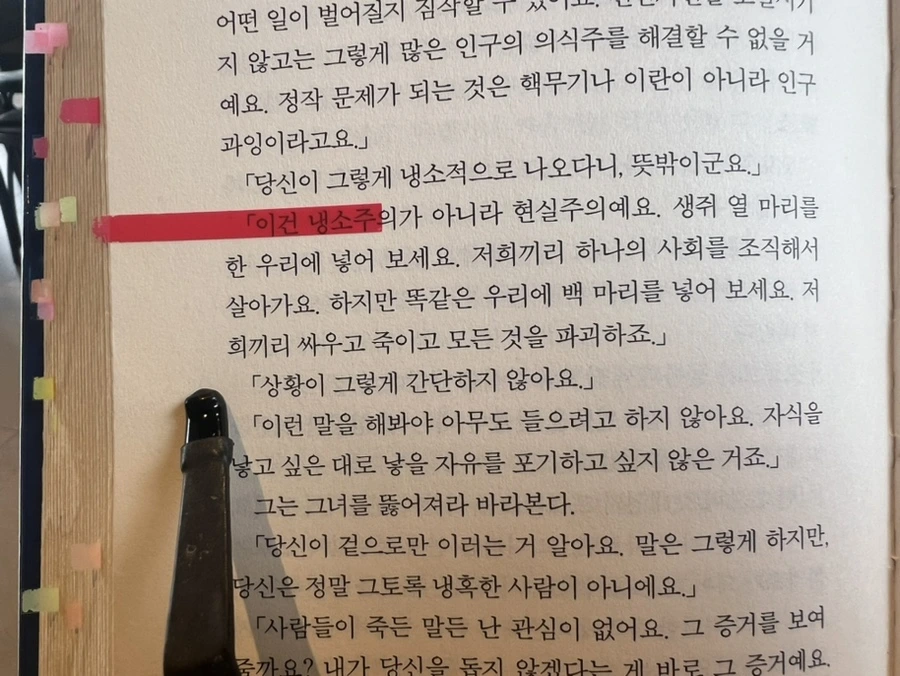 어떤 일이 벌어질지 짐작할 수 있어요.
지 않고는 그렇게 많은 인구의 의식주를 해결할 수 없을 거
예요. 정작 문제가 되는 것은 핵무기나 이란이 아니라 인구
과잉이라고요.」
「당신이 그렇게 냉소적으로 나오다니, 뜻밖이군요.」
「이건 냉소주의가 아니라 현실주의예요. 생쥐 열 마리를
한 우리에 넣어 보세요. 저희끼리 하나의 사회를 조직해서
살아가요. 하지만 똑같은 우리에 백 마리를 넣어 보세요. 저
희끼리 싸우고 죽이고 모든 것을 파괴하죠.」
「상황이 그렇게 간단하지 않아요.」
「이런 말을 해봐야 아무도 들으려고 하지 않아요. 자식을
낳고 싶은 대로 낳을 자유를 포기하고 싶지 않은 거죠.」
그는 그녀를 뚫어져라 바라본다.
「당신이 겉으로만 이러는 거 알아요. 말은 그렇게 하지만,
당신은 정말 그토록 냉혹한 사람이 아니에요.」
「사람들이 죽든 말든 난 관심이 없어요. 그 증거를 보여
줄까요? 내가 당신을 돕지 않겠다는 게 바로 그 증거예요.